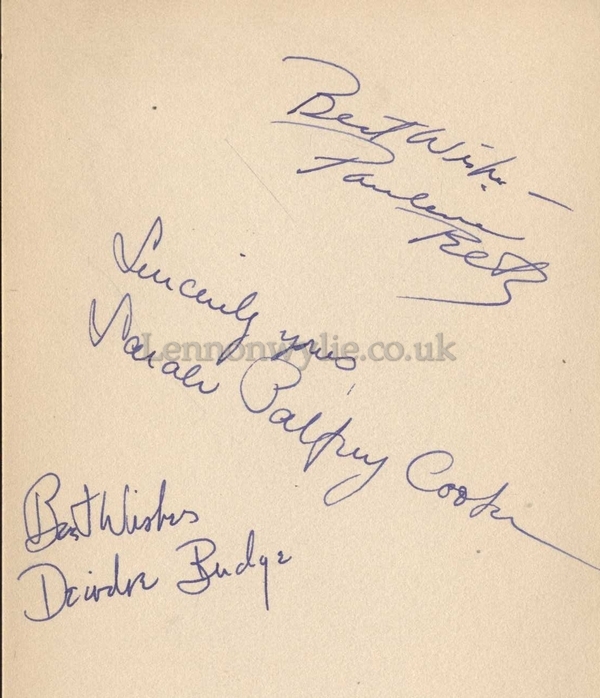 Best Wishes -
Pauline
Betz
Sincerely yours
Sarah Palfrey Cooke
Lennonwylie.co.uk
Best Wishes
Deirdre Budge